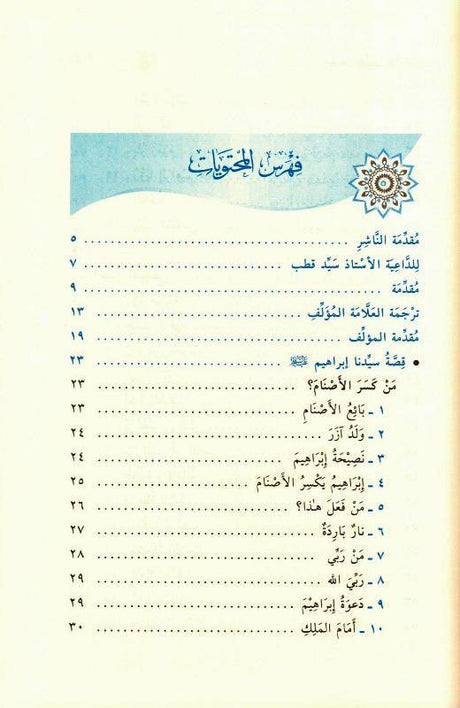 فِهْرِس المُحْتَوَيَات
مُقدِّمَة النَّاشِرِ ..... ٥
لِلدَّاعِيَة الأسْتاذ سَيِّد قطب ..... ٧
مُقدِّمَة ..... ٩
تَرْجَمَة العَلَّامَة المُؤَلِّفِ ..... ١٣
مُقدِّمة المؤلِّف ..... ١٩
• قِصَّةُ سيِّدنا إبراهيم ..... ٢٣
مَنْ كَسَرَ الأَصْنَامَ؟ ..... ٢٣
١ ـ بَائِعُ الأَصْنَامِ ..... ٢٣
٢ ـ وَلَدُ آزَرَ ..... ٢٤
٣ ـ نَصِيْحَةُ إِبْرَاهِيْمَ ..... ٢٤
٤ ـ إِبْرَاهِيْمُ يَكْسِرُ الأَصْنَامَ ..... ٢٥
٥ ـ مَنْ فَعَلَ هٰذا؟ ..... ٢٦
٦ ـ نارٌ بَارِدَةٌ ..... ٢٧
٧ ـ مَنْ رَبِّي ..... ٢٨
٨ ـ رَبِّيَ الله ..... ٢٩
٩ ـ دَعوَةُ إِبْرَاهِيْمَ ..... ٢٩
١٠ ـ أَمَامَ المَلِكِ ..... ٣٠